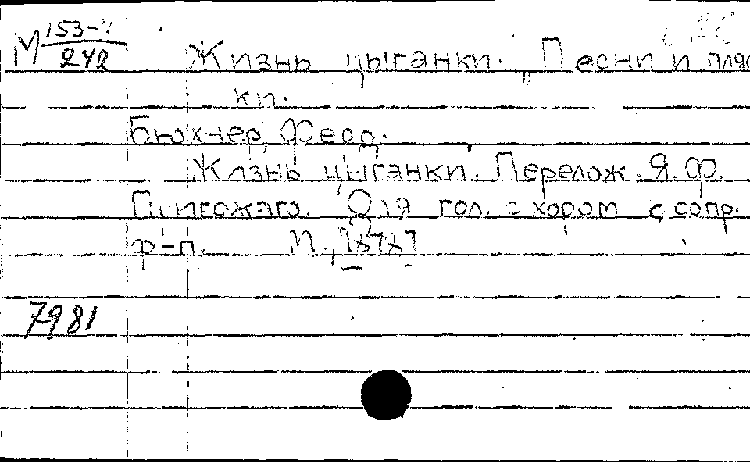 М 153-
242
Жизнь цыганки. „Песни и пляс
ки.
Бюхнер, Феод.
Жизнь цыганки. Перелож. Я. Ф.
Пригожаго. Для гол. с хором с сопр.
ф-п. М.,
7981